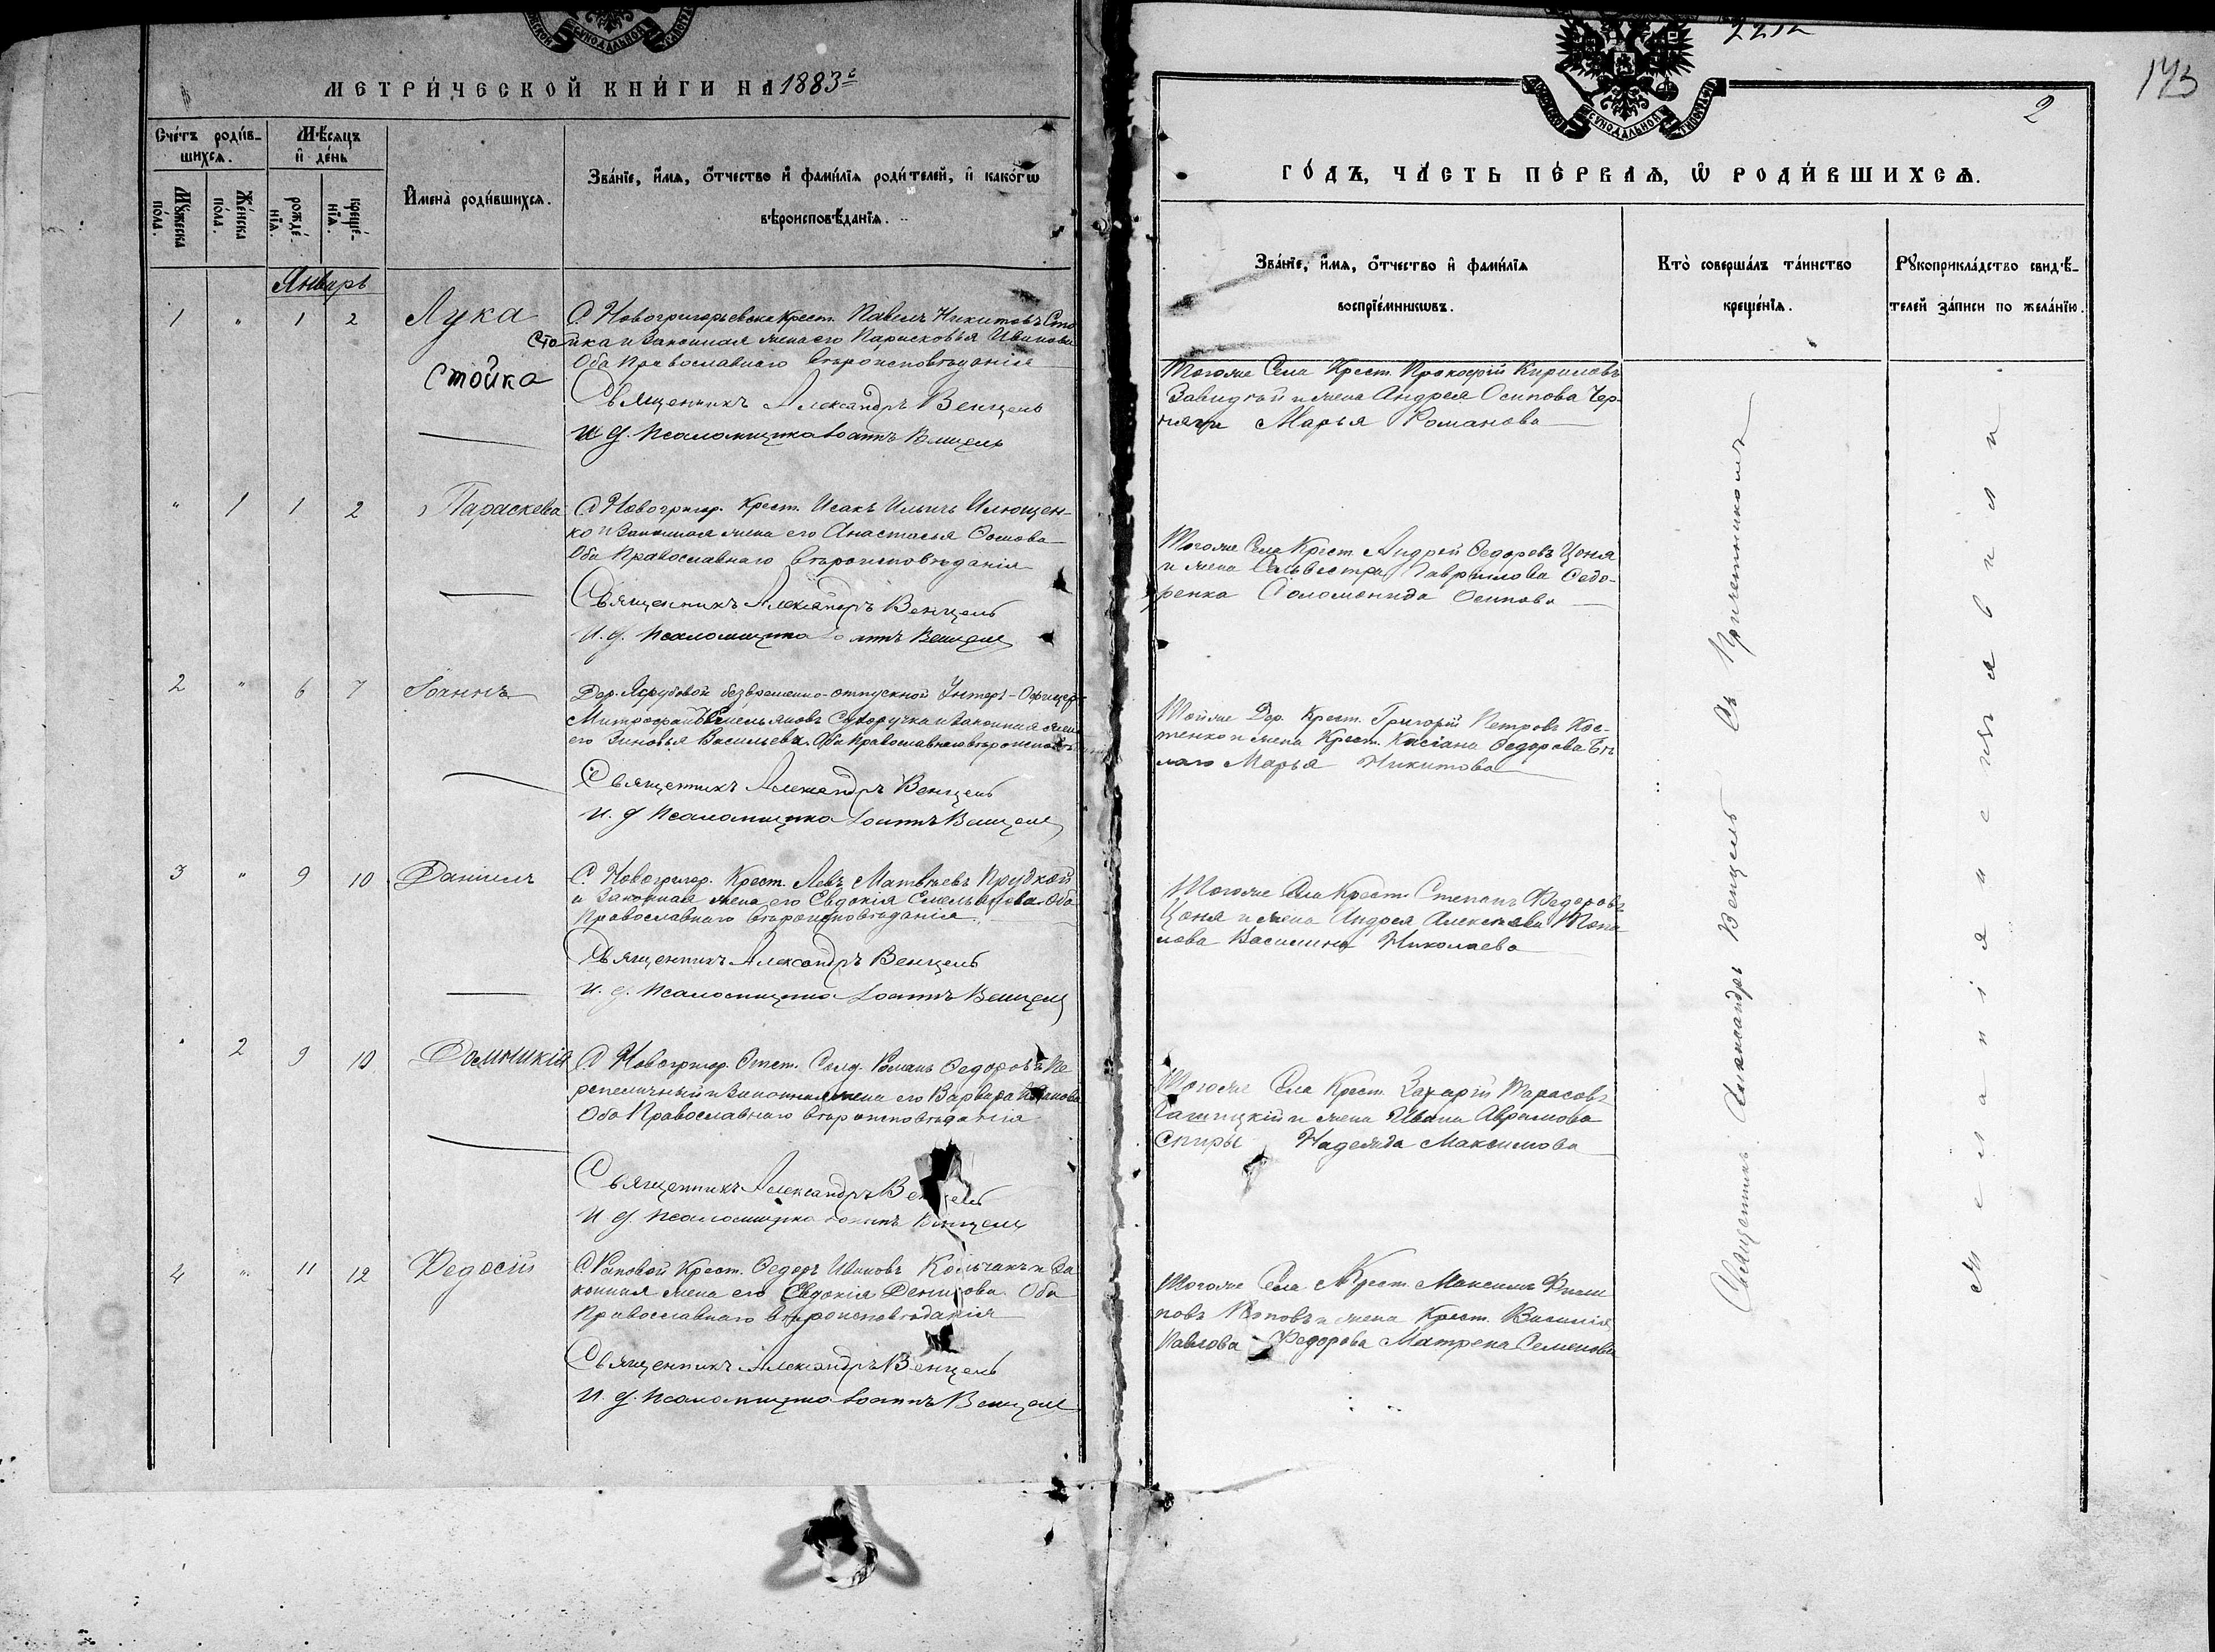 МЕТРИ́ЧЕСКОЙ КНИ́ГИ НА 1883 г̲
Сче́тъ роди́в-
шихсѧ.
Мѣ́сѧцъ
и҆ де́нь
Мꙋ́жеска
по́ла.
Же́нска
по́ла.
рожде́-
нїѧ.
креще́-
нїѧ.
И҆мена̀ роди́вшихсѧ.
Зва́нїе, и҆́мѧ, ѻ҆́тчество и҆ фами́лїѧ роди́телей, и҆ како́гѡ
вѣроисповѣ́данїѧ.
Январь
1 " 1 2 Лука С. Новогригорьевска Крест. Павелъ Никитовъ Сто
Стойка и Законная жена его Парасковья Иванова
Оба Православнаго вѣроисповѣданія
Стойка
Священникъ Александръ Венцель
И д. Псаломщика Іоаннъ Венцель
" 1 1 2 Параскева С. Новогригор. Крест. Исакъ Ильичъ Илющен-
ко и Законная жена его Анастасья
Оба Православнаго вѣроисповѣданія
Священникъ Александръ Венцель
И. д. Псаломщика Іоаннъ Венцель
2 " 6 7 Іоаннъ Дер. безвременно-отпускной Унтеръ-Офицеръ
Митрофанъ Емельяновъ Сухоручка и Законная жена
его Зиновья Васильева. Оба Православнаго вѣроисповѣд
Священникъ Александръ Венцель
И. д. Псаломщика Іоаннъ Венцель
3 " 9 10 Даніилъ С. Новогригор. Крест. Левъ Матвѣевъ Прудкой
и Законная жена его Евдокія Емельянова. Оба
Православнаго вѣроисповѣданія.
Священникъ Александръ Венцель
И. д. Псаломщика Іоаннъ Венцель
" 2 9 10 Домникія С. Новогригор. Отст. Солд. Романъ Федоровъ Пе
репеличный и Законная жена его Варвара
Оба Православнаго вѣроисповѣданія
Священникъ Александръ Венцель
И д. Псаломщика Іоаннъ Венцель
4 " 11 12 Федосій С. Крест. Федоръ Ивановъ Кольчакъ и За
конная жена его Евдокія Денисова Оба
Православнаго вѣроисповѣданія
Священникъ Александръ Венцель
И. д. Псаломщика Іоаннъ Венцель
173
2
ГО́ДЪ, ЧА́СТЬ ПЕ́РВАѦ, Ѡ҆ РОДИ́ВШИХСѦ.
Зва́нїе, и҆́мѧ, ѻ҆́тчество и҆ фами́лїѧ
воспрїе́мникѡвъ.
Кто̀ соверша́лъ та́инство
креще́нїѧ.
Рꙋкоприкла́дство свидѣ́-
телей за́писи по жела́нїю.
Тогоже Села Крест. Прокофій Кириловъ
Завидкій и жена Андрея Осипова Чер-
няги Марья Романова
Тогоже Села Крест. Андрей Федоровъ Цоня
и жена Сильвестра Гаврилова Федо-
ренка Соломонида Осипова
Тойже Дер. Крест. Григорій Петровъ Кос-
тенко и жена Крест. Касіана Федорова Бѣ
лаго Марья Никитова
Тогоже Села Крест. Степанъ Федоровъ
Цоня и жена Андрея Алексѣева
Василина Николаева
Тогоже Села Крест. Захарій Тарасовъ
и жена Ивана Аврамова
Спиры Надежда Максимова
Тогоже Села Крест. Максимъ Филип
повъ Поповъ и жена Крест. Василія
Павлова Федорова Матрена Семенова
Священникъ Александръ Венцель Съ Причетникомъ
Желанія не изъявили